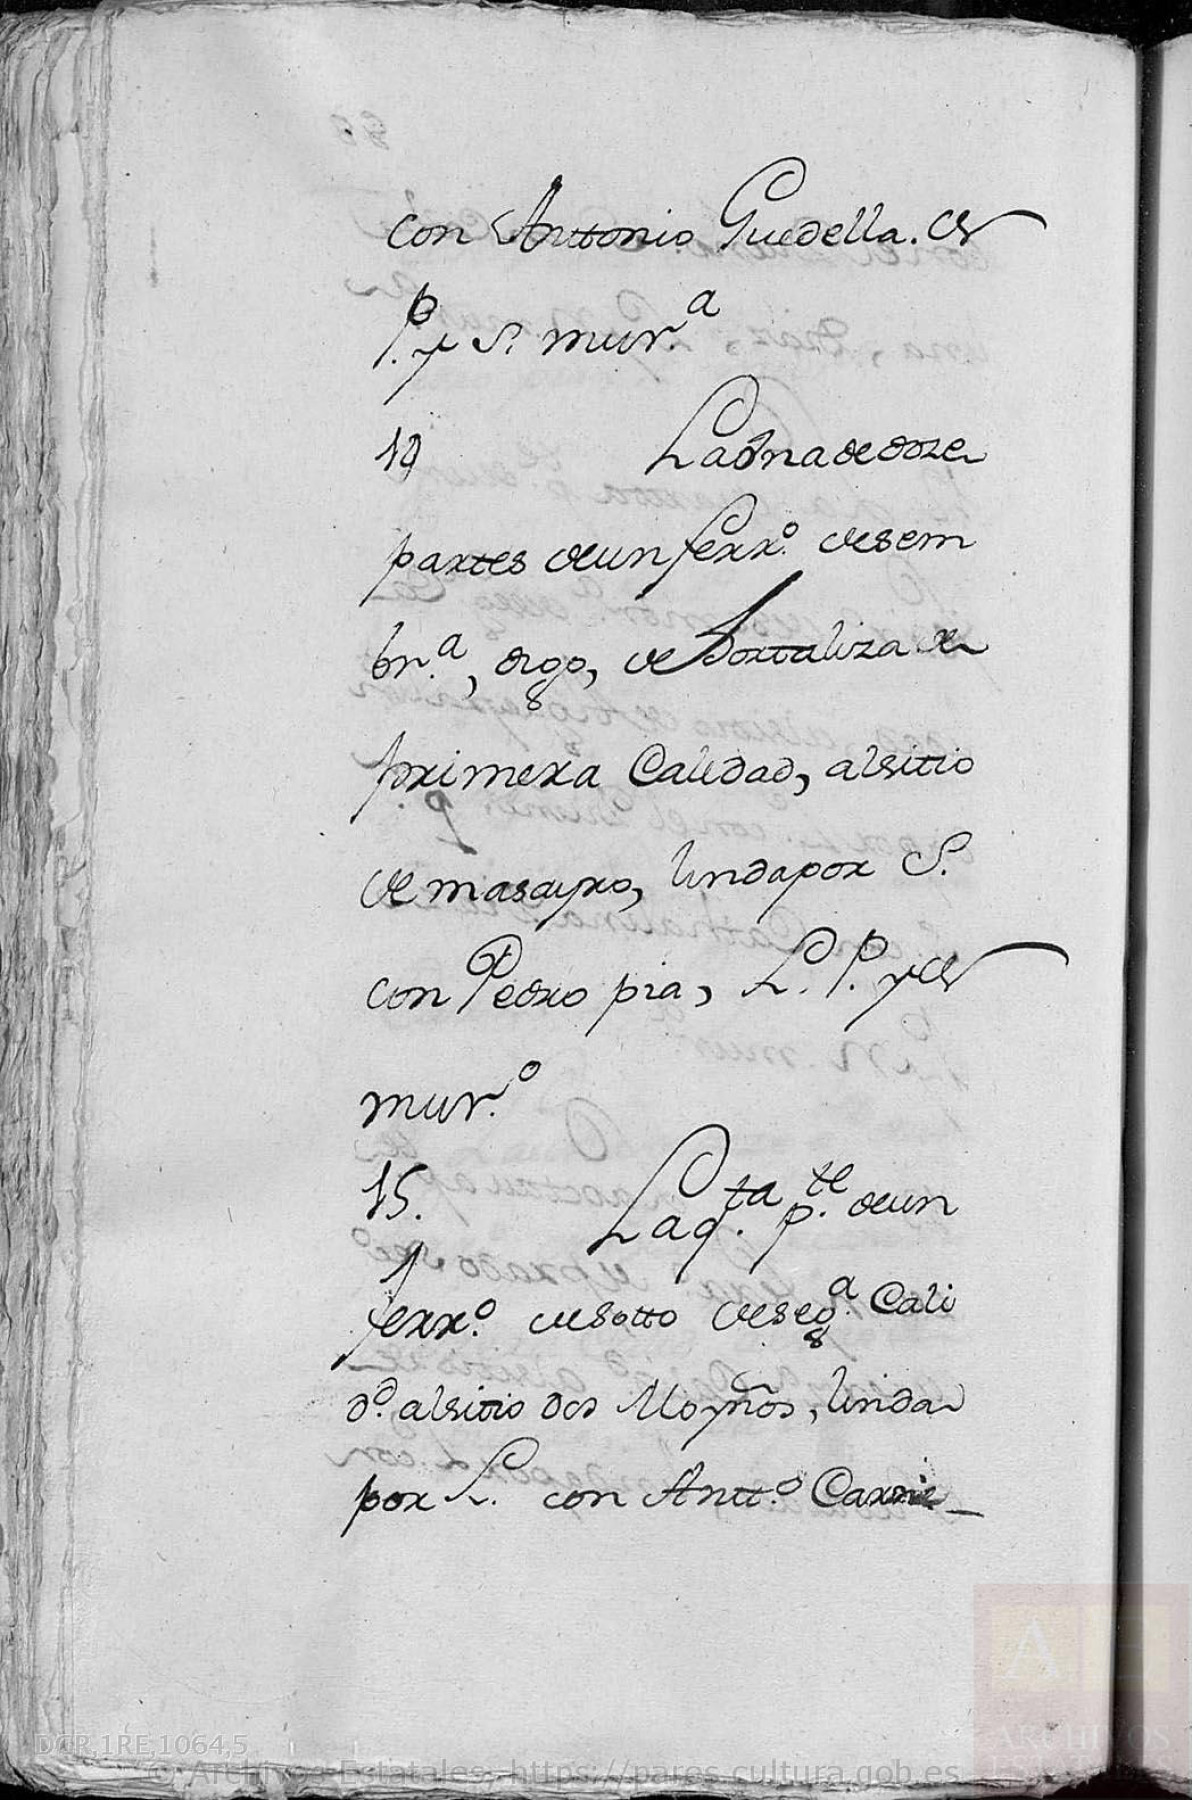 con Anttonio Guedella. N
P. y S. mur.ª
14 La Una de doze
partes de un ferr.º de sem
br.ª, digo, de hortaliza de
primera Calidad, al sitio
de masayro, linda por S.
con Pedro pia, L. P. y N
mur.º
15. La q.ta p.te de un
ferr.º de sotto de seg.ª Cali
d.d al sitio dos Moyños, linda
por L. con Antt.º
DGR,1RE,1064,5
© Archivos Estatales, https://pares.cultura.gob.es
A E
ARCHIVOS
ESTATALES